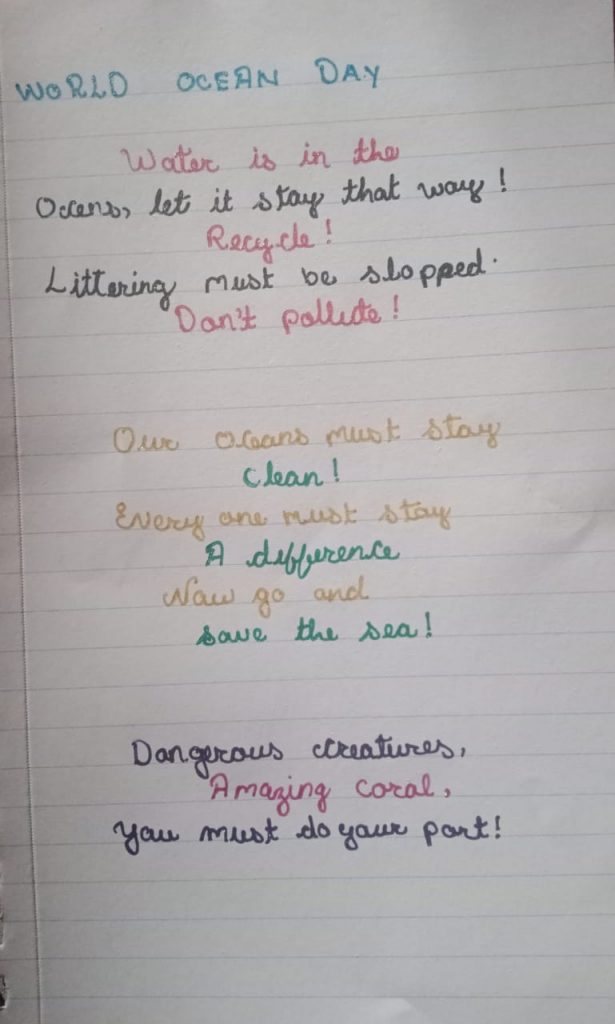 WORLD OCEAN DAY
Water is in the
Ocens, let it stay that way!
Recycle!
Littering must be slopped.
Don't pollute!
Our oceans must stay
Clean!
Every one must stay
A difference
Now go and
save the sea!
Dangerous creatures,
Amazing coral,
You must do your part!